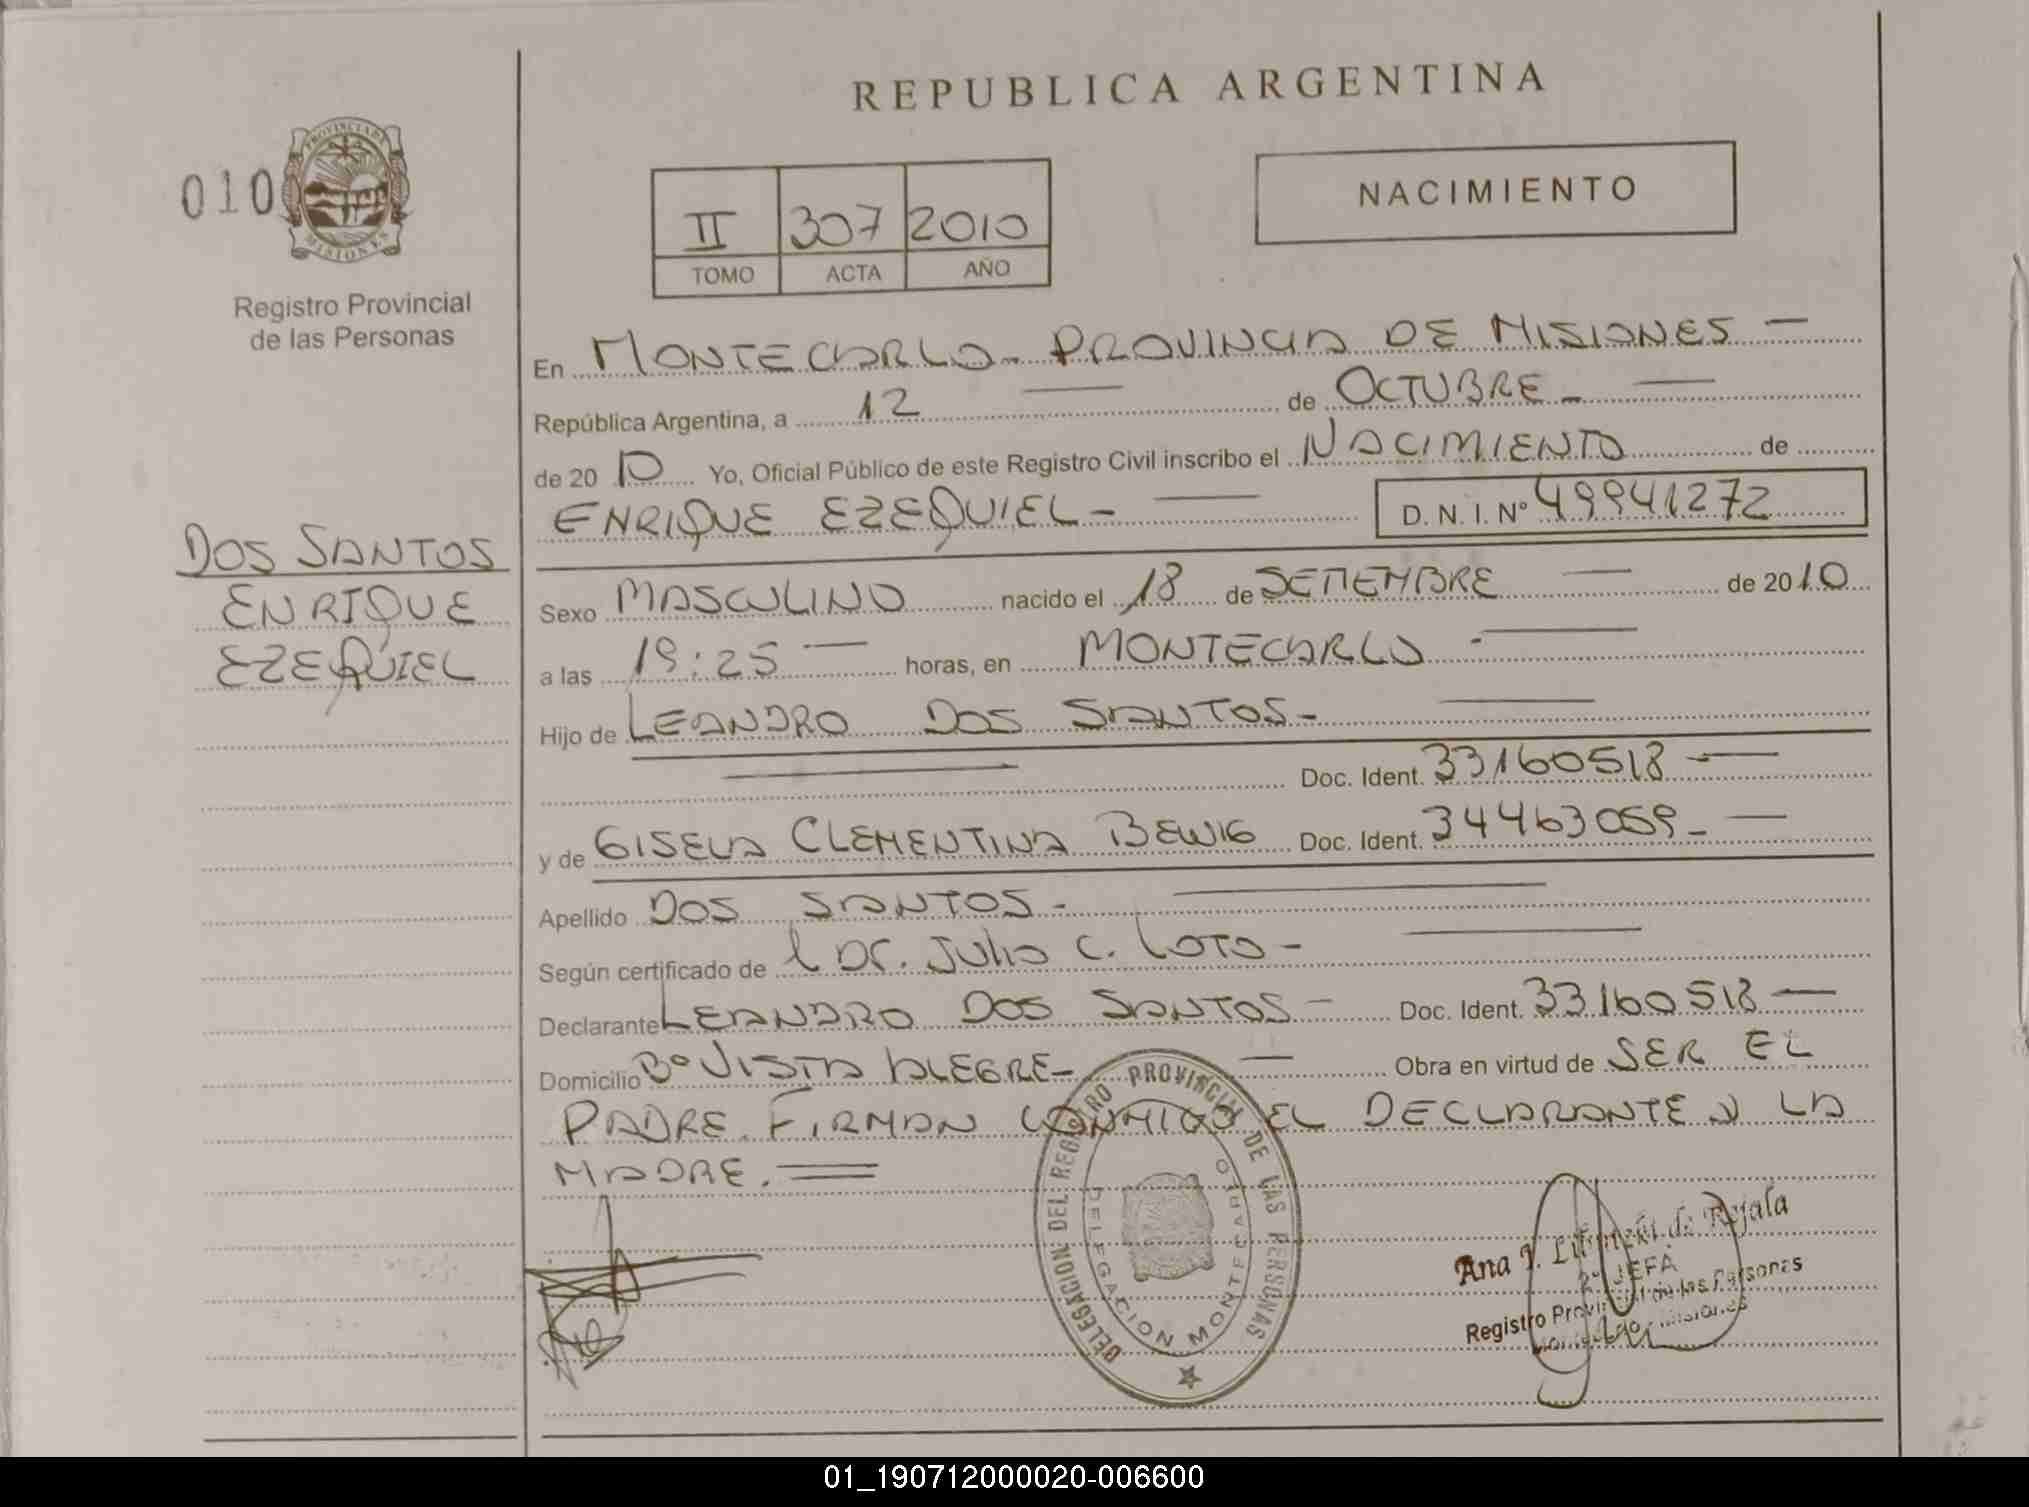 REPUBLICA ARGENTINA
010
PROVINCIA DE MISIONES
Registro Provincial
de las Personas
NACIMIENTO
II 307 2010
TOMO ACTA AÑO
En MONTECARLO - PROVINCIA DE MISIONES -
República Argentina, a 12 de OCTUBRE -
de 20 10 Yo, Oficial Público de este Registro Civil inscribo el NACIMIENTO de
ENRIQUE EZEQUIEL - D.N.I. Nº 49941272
DOS SANTOS
ENRIQUE
EZEQUIEL
Sexo MASCULINO nacido el 18 de SETIEMBRE de 2010
a las 19:25 horas, en MONTECARLO -
Hijo de LEANDRO DOS SANTOS -
Doc. Ident. 33160518 -
y de GISELA CLEMENTINA BEWIG Doc. Ident. 34463059 -
Apellido DOS SANTOS -
Según certificado de Dr. Julio C. Loto -
Declarante LEANDRO DOS SANTOS - Doc. Ident. 33160518 -
Domicilio Bº VISTA ALEGRE - Obra en virtud de SER EL
PADRE. FIRMAN CONMIGO EL DECLARANTE Y LA
MADRE.
DELEGACION DEL REGISTRO PROVINCIAL DE LAS PERSONAS
DELEGACION MONTECARLO
Ana de
2º JEFA
Registro Provincial de las Personas
Montecarlo - Misiones
01_190712000020-006600